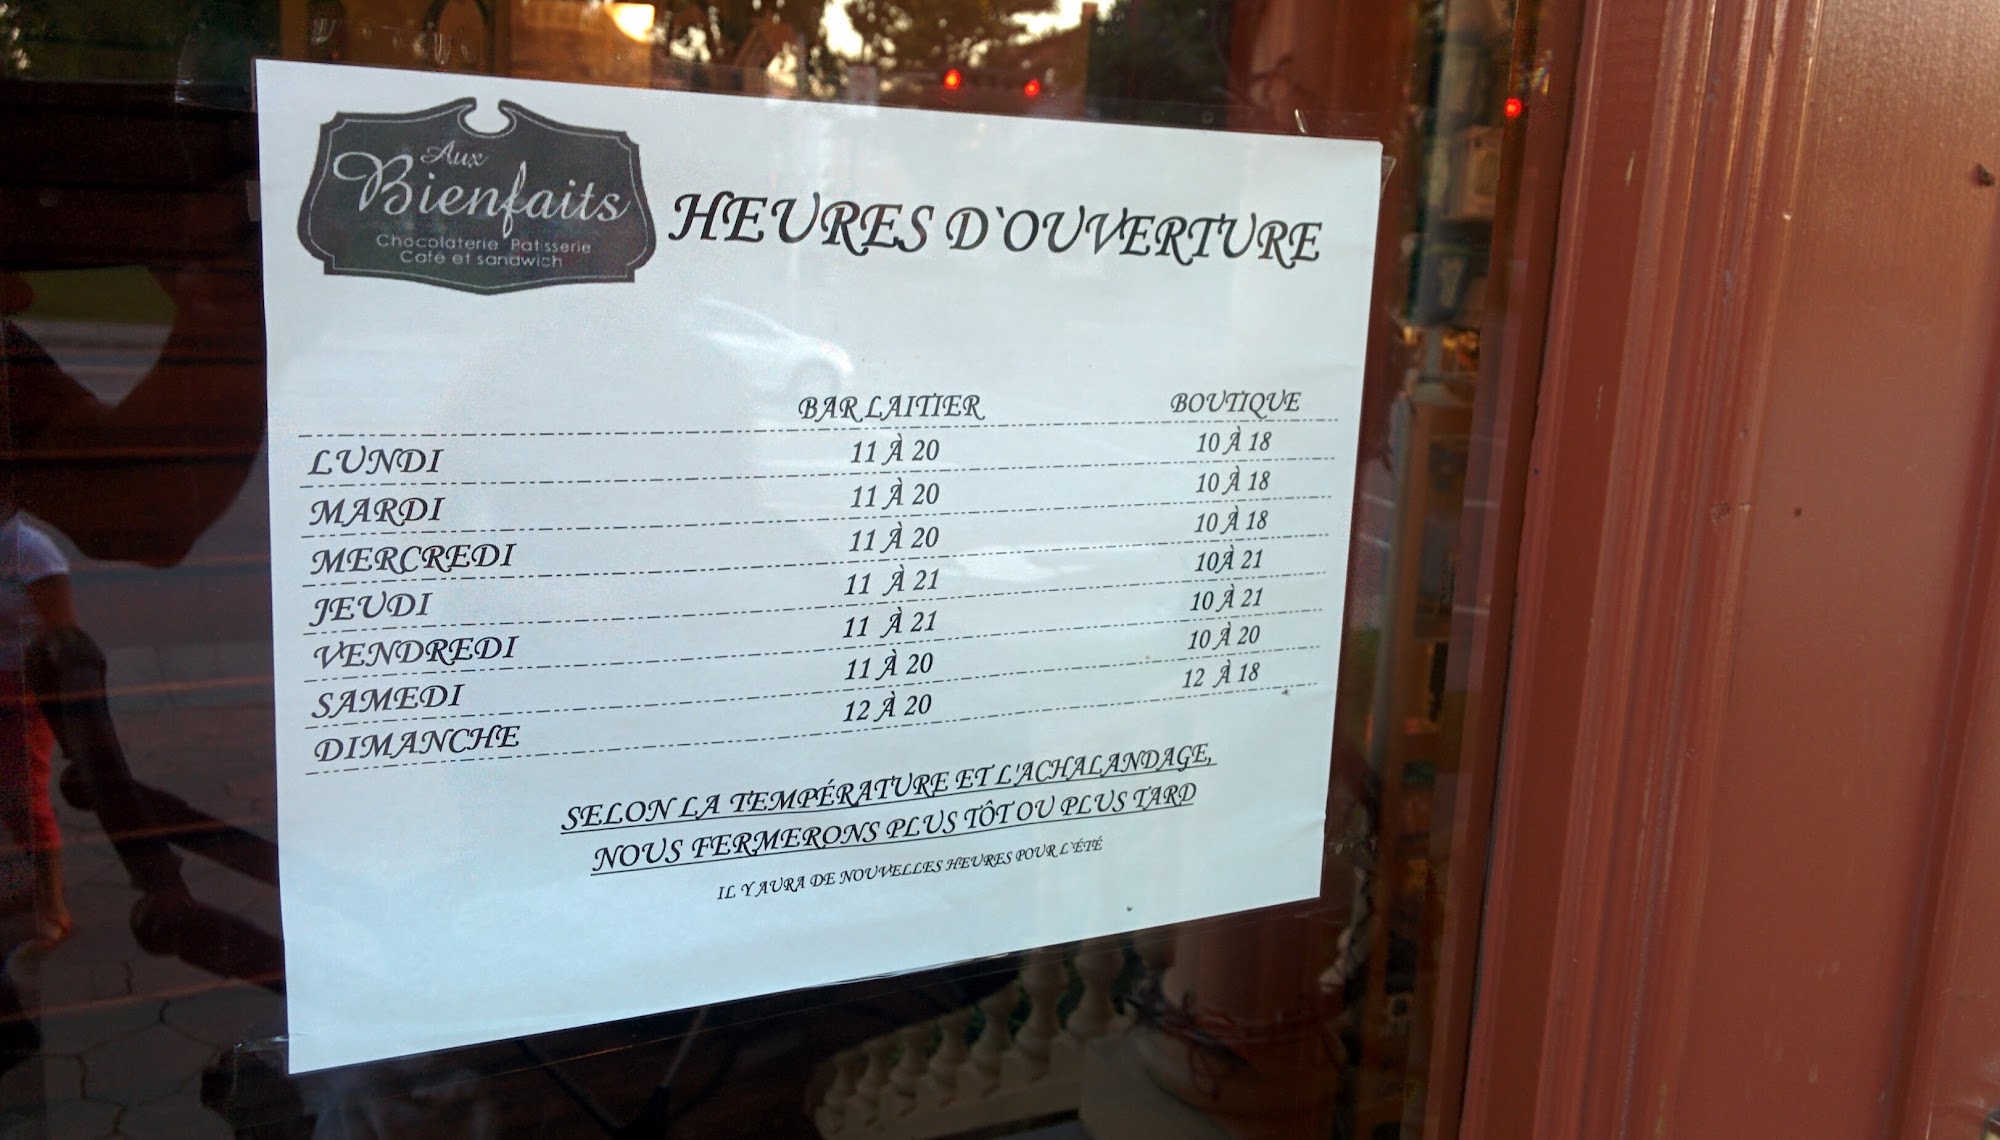 Aux
Bienfaits
Chocolaterie Patisserie
Café et sandwich
HEURES D`OUVERTURE
BAR LAITIER BOUTIQUE
LUNDI 11 À 20 10 À 18
MARDI 11 À 20 10 À 18
MERCREDI 11 À 20 10 À 18
JEUDI 11 À 21 10À 21
VENDREDI 11 À 21 10 À 21
SAMEDI 11 À 20 10 À 20
DIMANCHE 12 À 20 12 À 18
SELON LA TEMPÉRATURE ET L'ACHALANDAGE,
NOUS FERMERONS PLUS TÔT OU PLUS TARD
IL Y AURA DE NOUVELLES HEURES POUR L`ÉTÉ